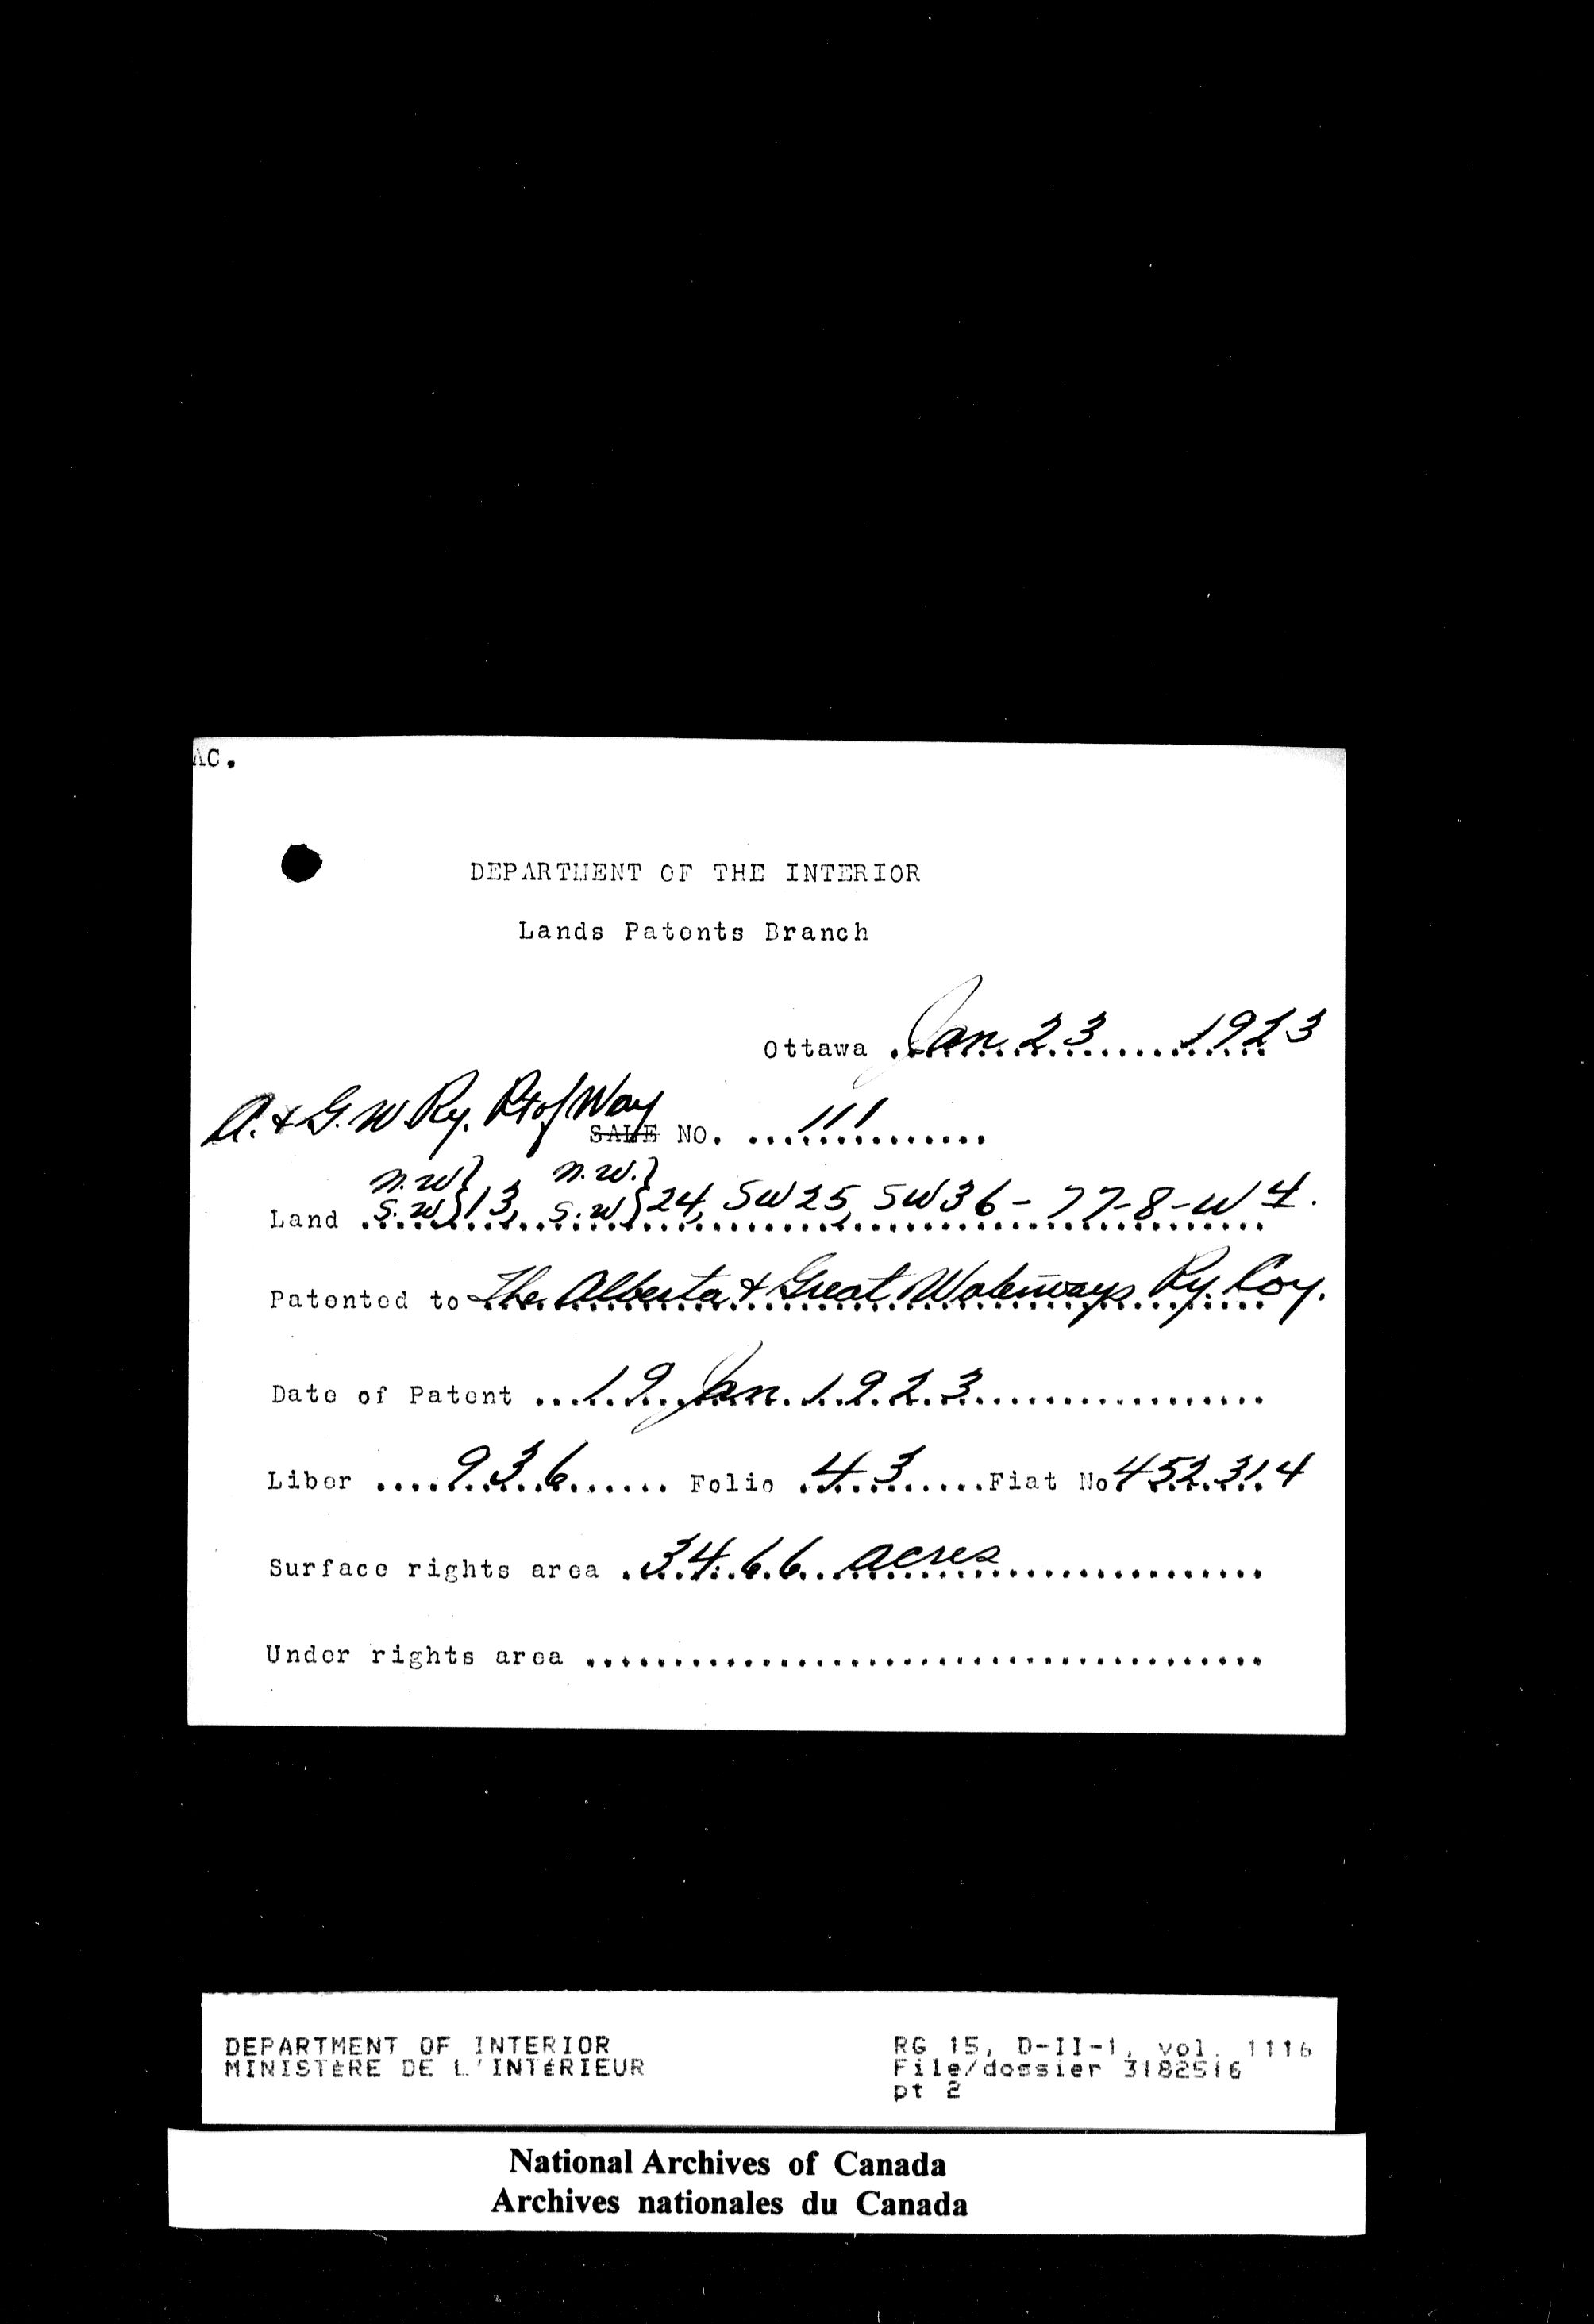 AC.
DEPARTMENT OF THE INTERIOR
Lands Patents Branch
Ottawa Jan 23 1923
A. & G. W Ry. Rt of Way SALE NO. 111
N.W } N.W. }
Land S.W } 13, S.W } 24, SW 25, SW 36 - 77-8-W 4.
Patented to The Alberta & Great Waterways Ry. Coy.
Date of Patent 19 Jan. 1923
Liber 936 Folio 43 Fiat No 452314
Surface rights area 34.66 acres
Under rights area
DEPARTMENT OF INTERIOR RG 15, D-II-1, vol. 1116
MINISTÈRE DE L'INTÉRIEUR File/dossier 3182516
pt 2
National Archives of Canada
Archives nationales du Canada